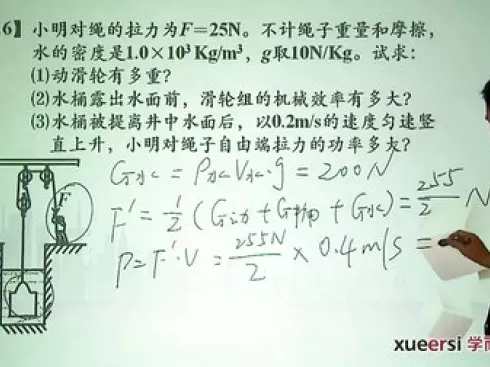 6】小明对绳的拉力为F=25N。不计绳子重量和摩擦，
水的密度是1.0×10³Kg/m³，g取10N/Kg。试求：
(1)动滑轮有多重?
(2)水桶露出水面前，滑轮组的机械效率有多大?
(3)水桶被提离井中水面后，以0.2m/s的速度匀速竖
直上升，小明对绳子自由端拉力的功率多大?
G水 = ρ水V水·g = 200N
F' = 1/2 (G动 + G桶 + G水) = 255/2 N
P = F'·V = 255N/2 × 0.4m/s =
F
xueersi 学而